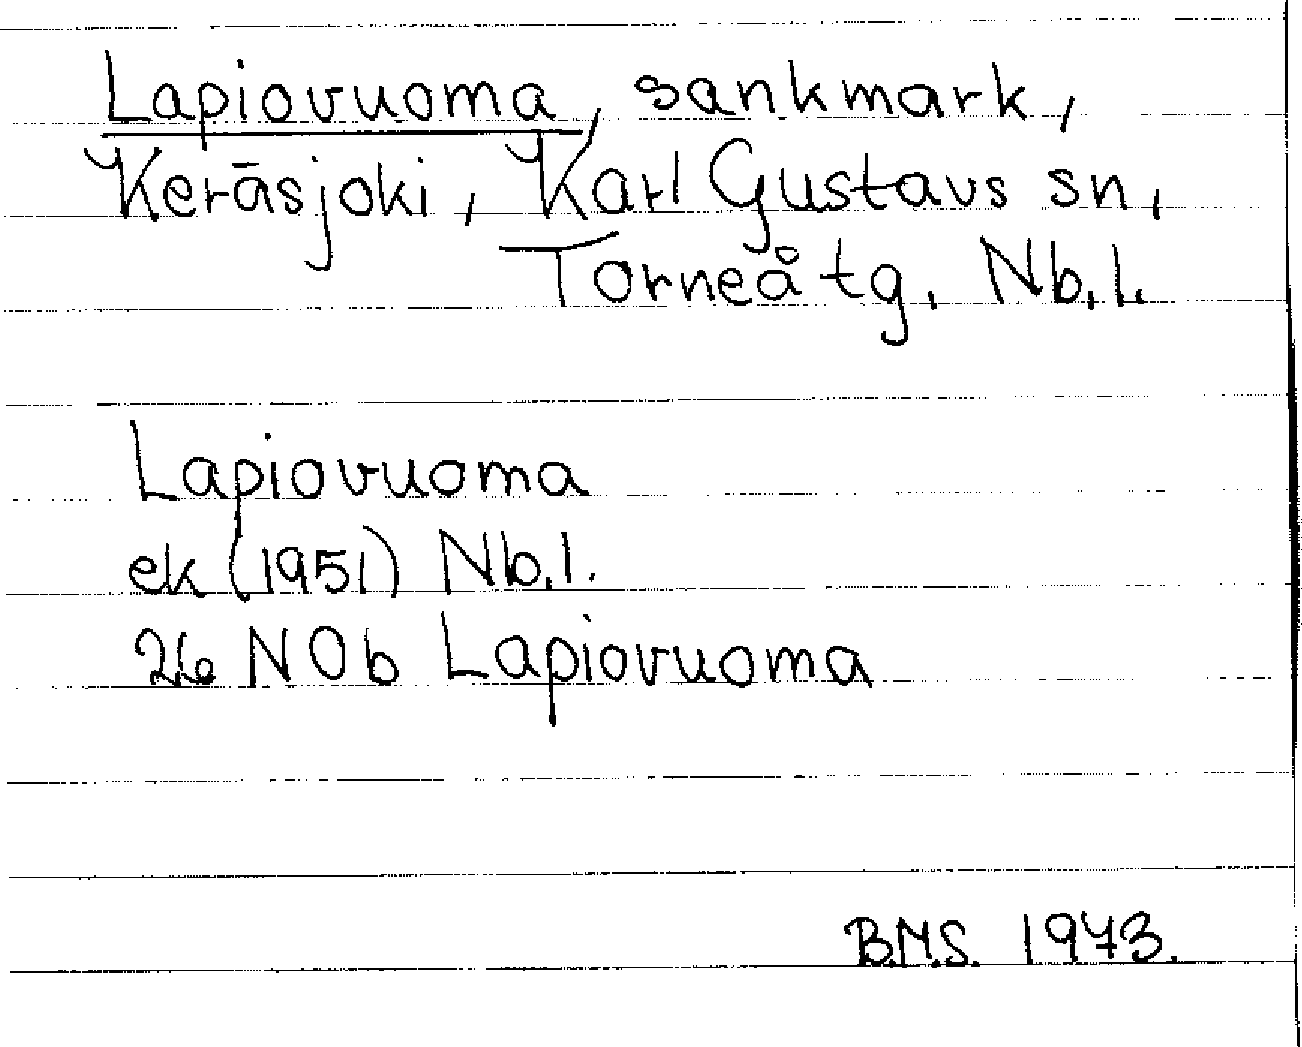 Lapiovuoma, sankmark,
Keräsjoki, Karl Gustavs sn,
Torneå tg. Nb.l.
Lapiovuoma
ek (1951) Nb.l.
26 NOb Lapiovuoma
B.M.S. 1973.